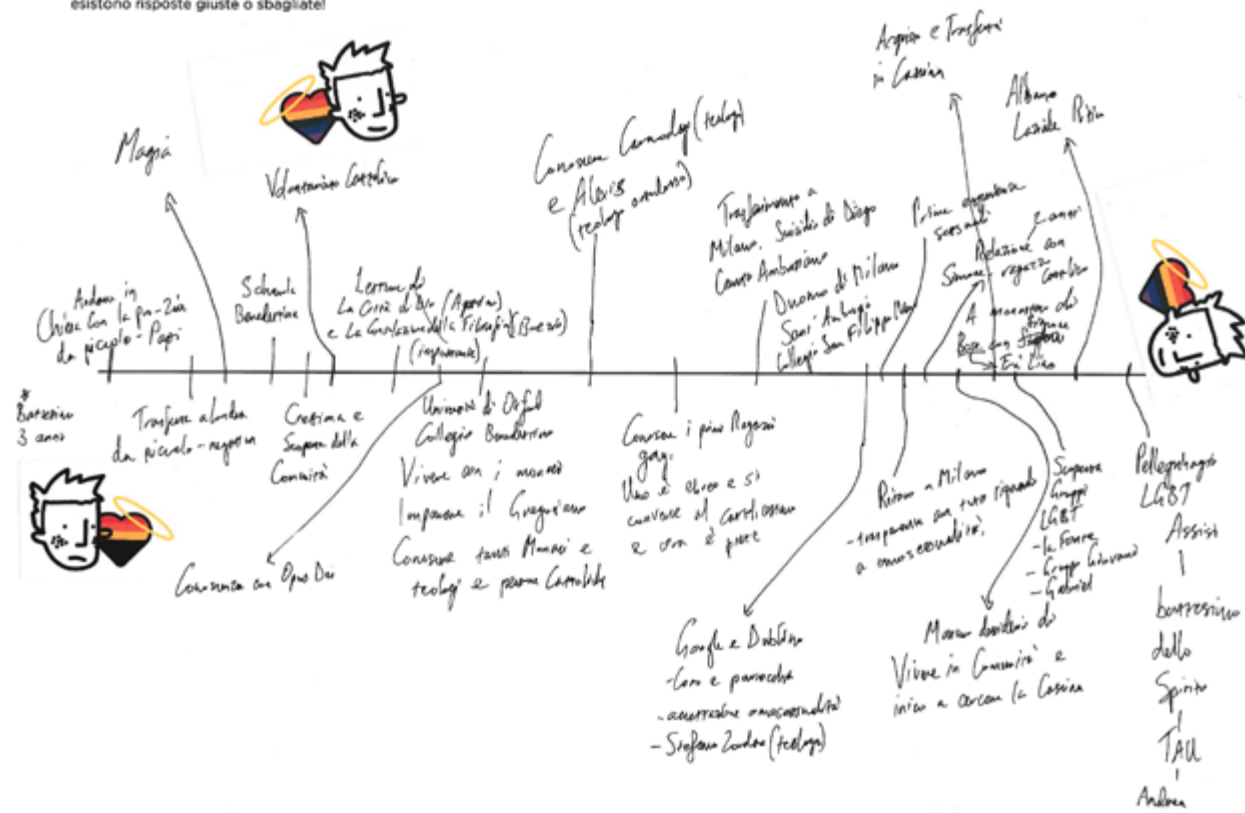 esistono risposte giuste o sbagliate!
Magia
Volontariato Cattolico
Andare in
Chiesa con la pro-Zia
da piccolo - Papi
Scuola
Benedettina
Lettura di
La Città di Dio (Agostino)
e La Consolazione della Filosofia (Boezio)
(importante)
e Alexis
(teologo ortodosso)
Trasferimento a
Milano. Suicidio di Diego
Canto Ambrosiano
Duomo di Milano
Sant' Ambrogio
Collegio San Filippo
Acquisto e Trasferirsi
in Cascina
Prime esperienze
sessuali
2 anni
Relazione con
Simone - ragazzo
cattolico
A monastero di
Bose con
Albano
Laziale Ritiro
*
Battesimo
3 anni
Trasferire a Londra
da piccolo - negativo
Cresima e
Scoperta della
Comunità
Conoscenza con Opus Dei
Università di Oxford
Collegio Benedettino
Vivere con i monaci
Imparare il Gregoriano
Conoscere tanti Monaci e
teologi e persone Cattoliche
Conoscere i primi Ragazzi
gay.
Uno è ebreo e si
converte al cattolicesimo
e ora è prete
Google e Dublino
- Coro e parrocchia
- accettazione omosessualità
- Stefano (teologo)
Ritorno a Milano
- trasparenza con tutti riguardo
a omosessualità.
Desiderio di
Vivere in Comunità e
inizio a cercare la Cascina
Scoperta
Gruppi
LGBT
- la Fonte
- Gruppo Giovani
- Gabriel
Pellegrinaggio
LGBT
Assisi
battesimo
dello
Spirito
TAU
Andrea